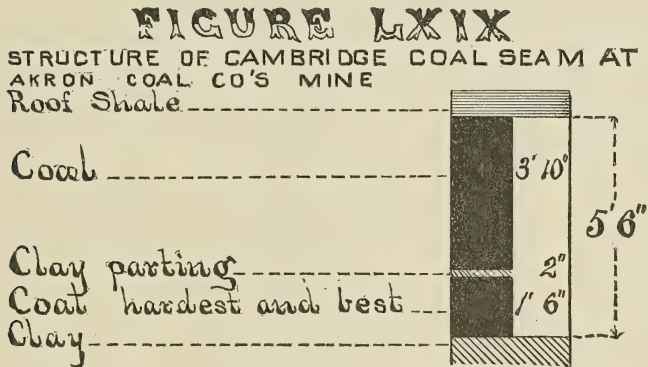 FIGURE LXIX
STRUCTURE OF CAMBRIDGE COAL SEAM AT
AKRON COAL CO'S MINE
Roof Shale
Coal 3' 10"
5' 6"
Clay parting 2"
Coal hardest and best 1' 6"
Clay